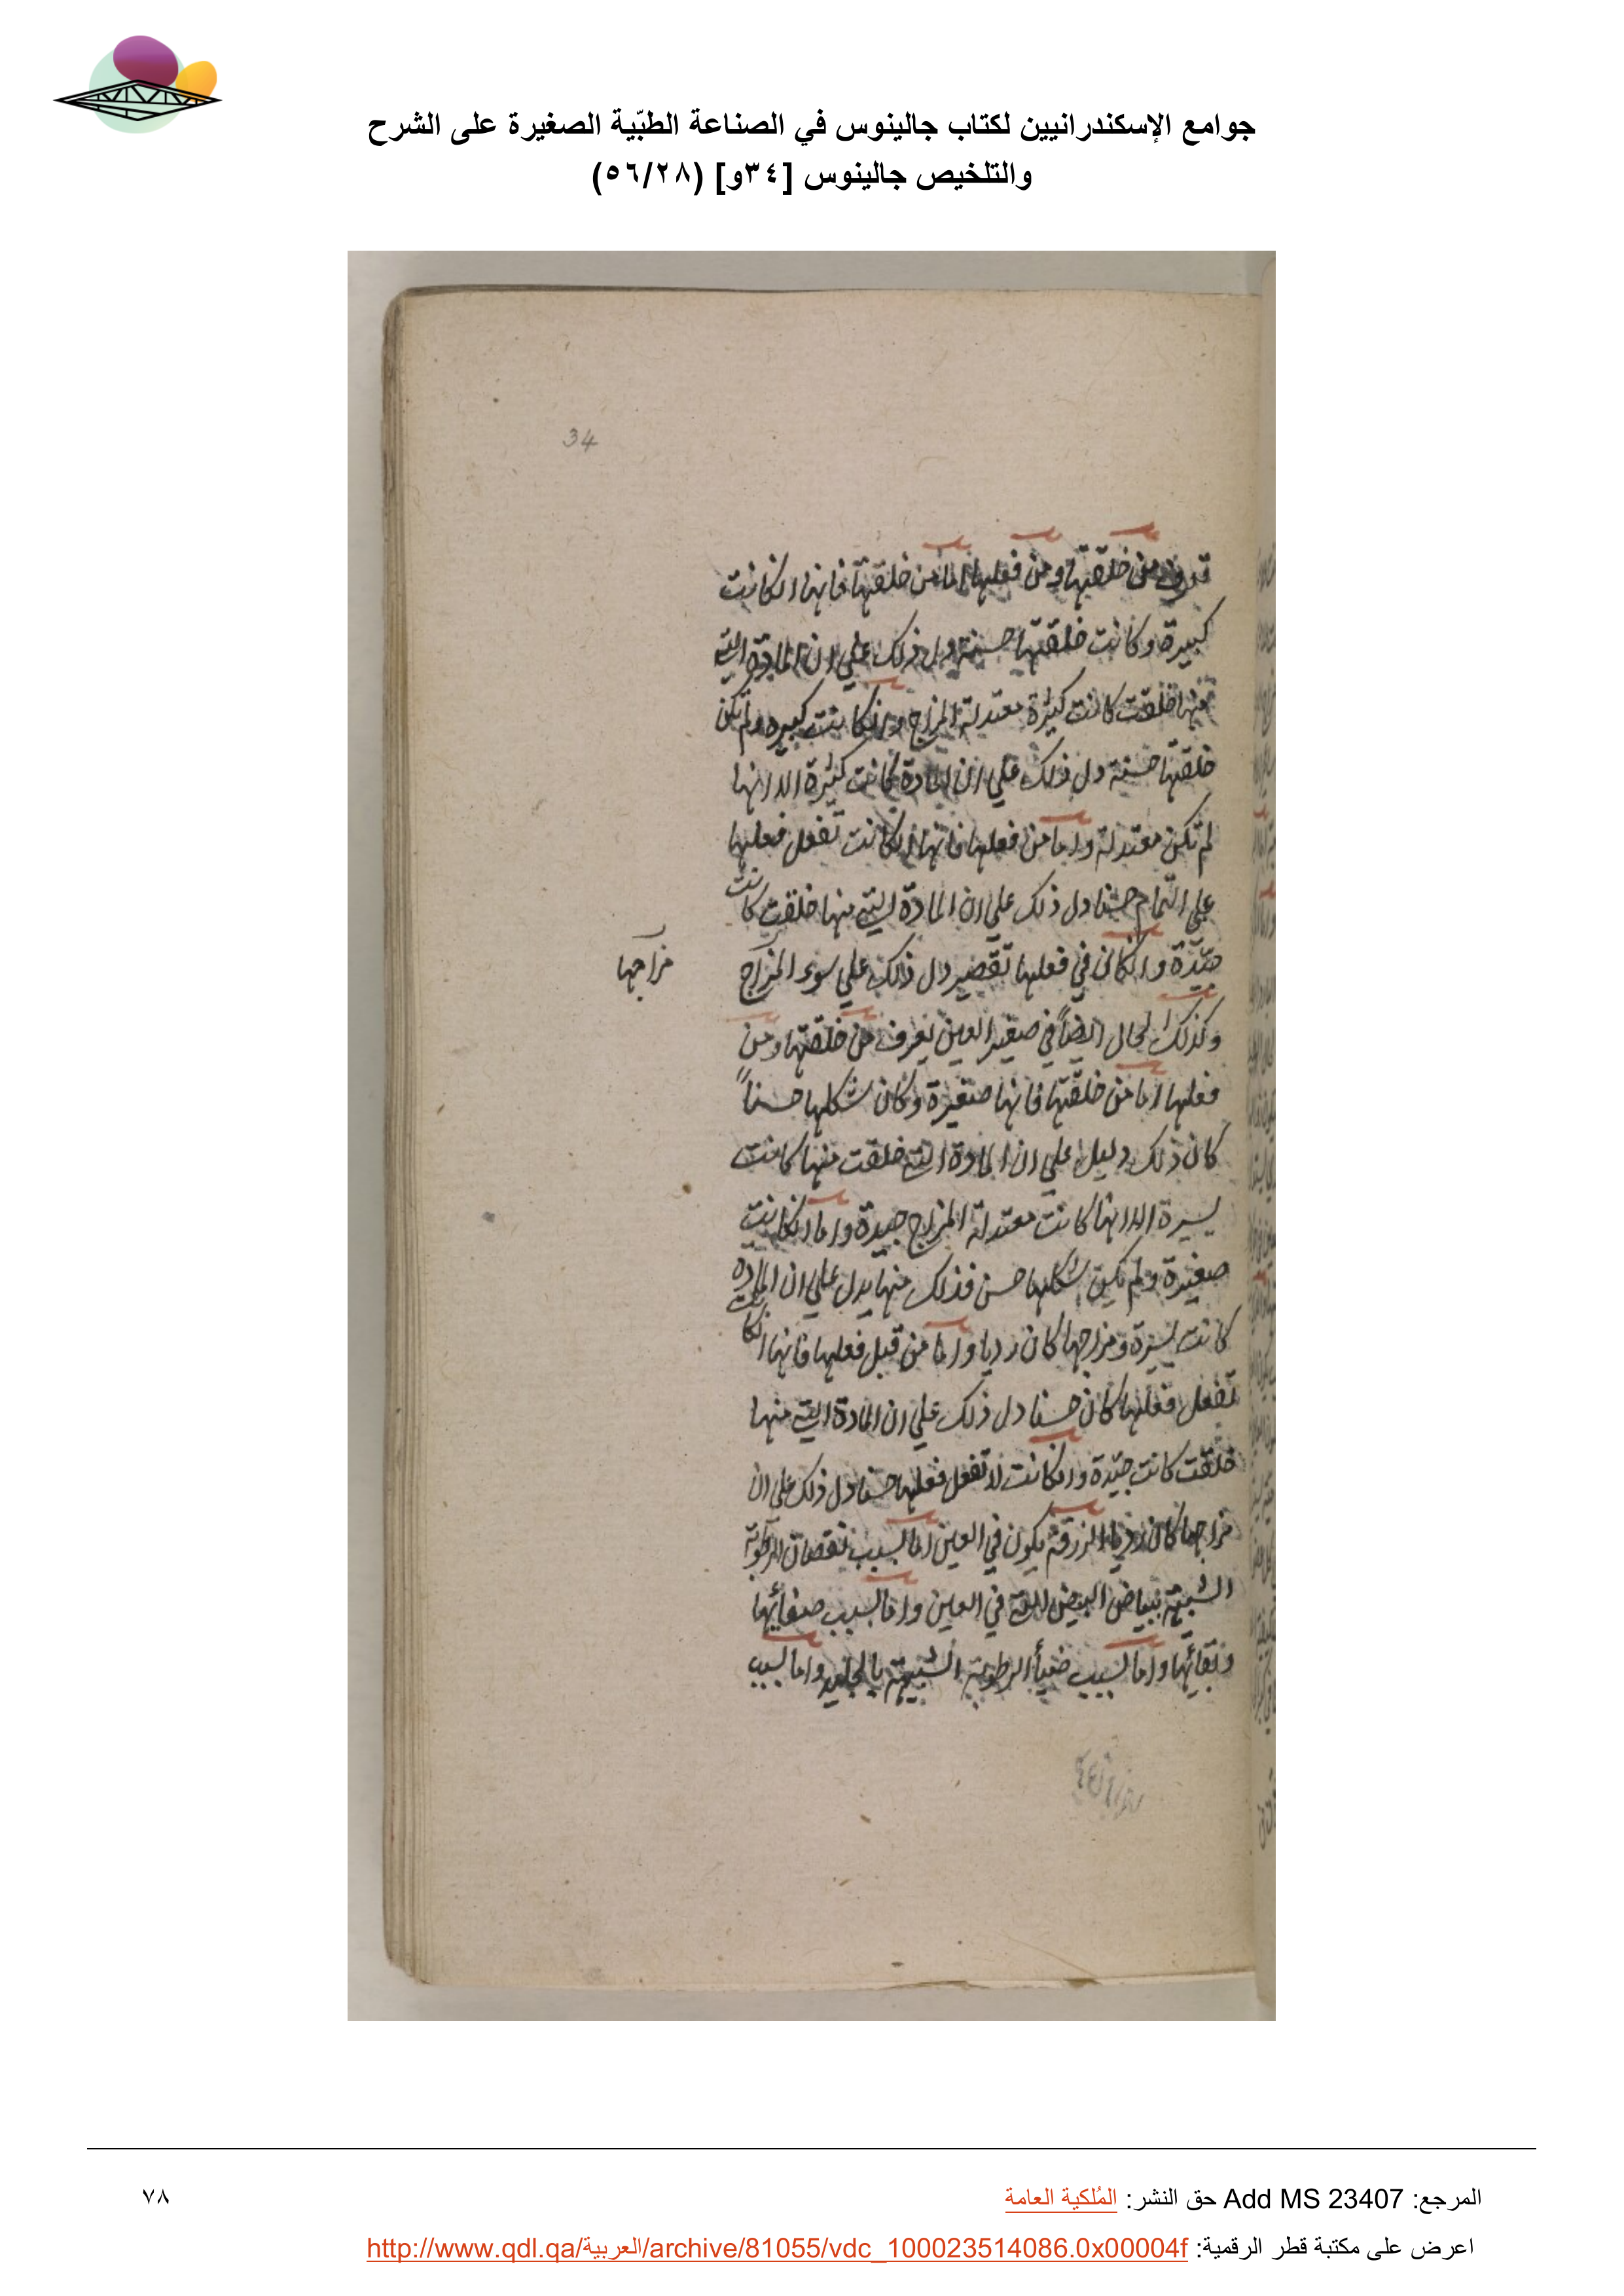 جوامع الإسكندرانيين لكتاب جالينوس في الصناعة الطبّية الصغيرة على الشرح
والتلخيص جالينوس [٣٤و] (٥٦/٢٨)
34
من خلقتها ومن فعلها اما من خلقتها فانها انكانت
كبيرة وكانت خلقتها حسنة دل ذلك على ان المادة التي
منها خلقت كانت كثيرة معتدلة المزاج وانكانت كبيره ولم تكن
خلقتها حسنة دل ذلك علي ان المادة كانت كثيرة الا انها
لم تكن معتدلة واما من فعلها فانها انكانت تفعل فعلها
علي التمام حسنا دل ذلك علي ان المادة التي منها خلقت كانت
جيّدة وانكان في فعلها تقصير دل ذلك علي سوء المزاج
مزاجها
وكذلك الحال ايضاً في صغير العين يعرف من خلقتها ومن
فعلها اما من خلقتها فانها صغيرة وكان شكلها حسناً
كان ذلك دليل علي ان المادة التي خلقت منها كانت
يسيرة الا انها كانت معتدلة المزاج جيدة واما انكانت
صغيرة ولم يكن شكلها حسن فذلك منها يدل علي ان المادة
كانت يسيرة ومزاجها كان رديا واما من قبل فعلها فانها انكانت
تفعل فعلها كان حسنا دل ذلك علي ان المادة التي منها
خلقت كانت جيّدة وانكانت لا تفعل فعلها حسنا دل ذلك على ان
مزاجها كان رديا الزرقة يكون في العين اما لسبب نقصان الرطوبة
الشبيهة ببياض البيض التي في العين واما لسبب صفائها
ونقائها واما لسبب ضيأ الرطوبة الشبيهة بالجليد واما لسبب
المرجع: Add MS 23407 حق النشر: المُلكية العامة
٧٨
اعرض على مكتبة قطر الرقمية: http://www.qdl.qa/العربية/archive/81055/vdc_100023514086.0x00004f